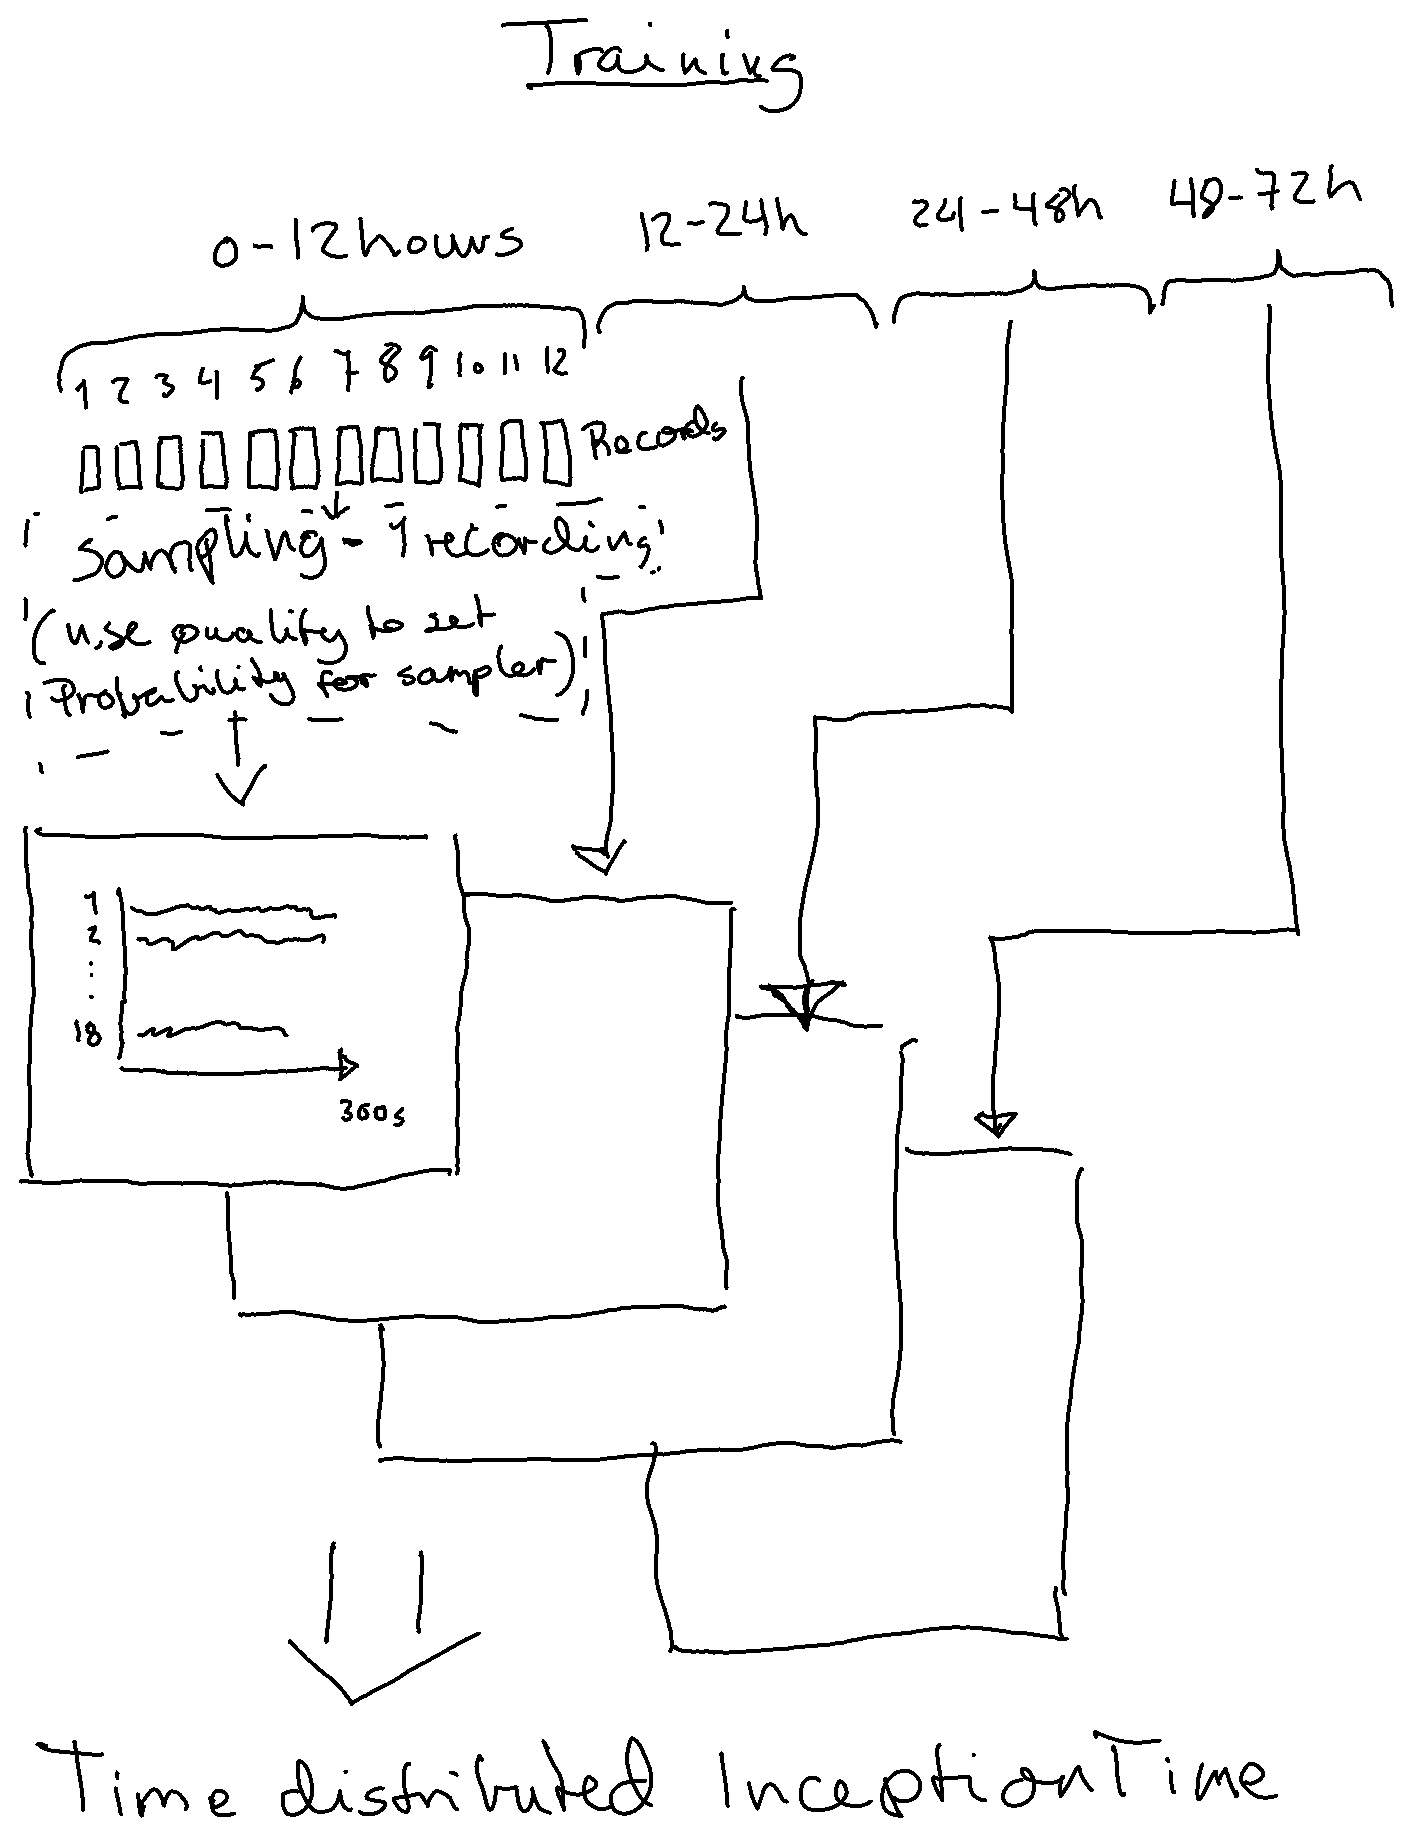 Training
0-12hours
12-24h
24-48h
48-72h
1 2 3 4 5 6 7 8 9 10 11 12
Records
Sampling - 1 recording
(use quality to set
Probability for sampler)
1
2
18
300s
Time distributed InceptionTime